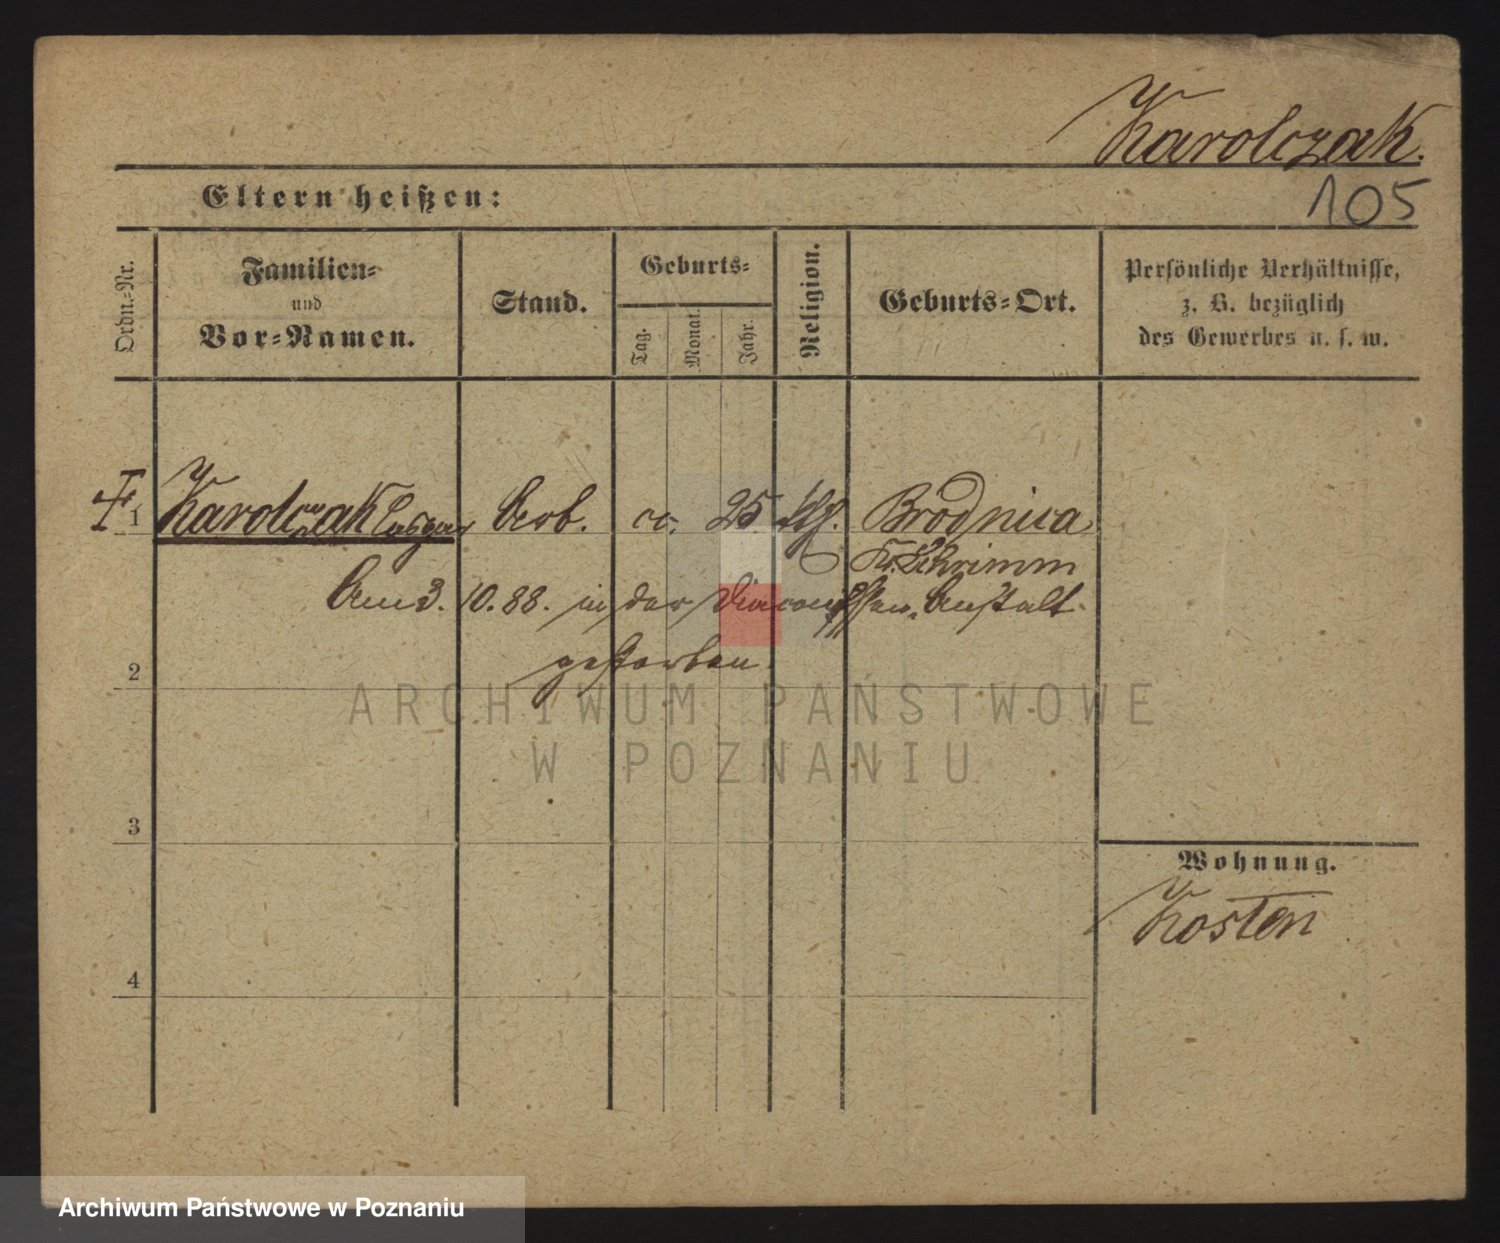 Karolczak.
105
Eltern heißen:
Ordn.-Nr.
Familien-
und
Vor-Namen.
Stand.
Geburts-
Tag.
Monat.
Jahr.
Religion.
Geburts-Ort.
Persönliche Verhältnisse,
z. B. bezüglich
des Gewerbes u. s. w.
1 Karolczak Arb. 25 kth. Brodnica
Kr. Schrimm
Am 3. 10. 88. in der Diaconissen Anstalt
gestorben.
2
3
4
Wohnung.
Kosten
ARCHIWUM PAŃSTWOWE
W POZNANIU
Archiwum Państwowe w Poznaniu